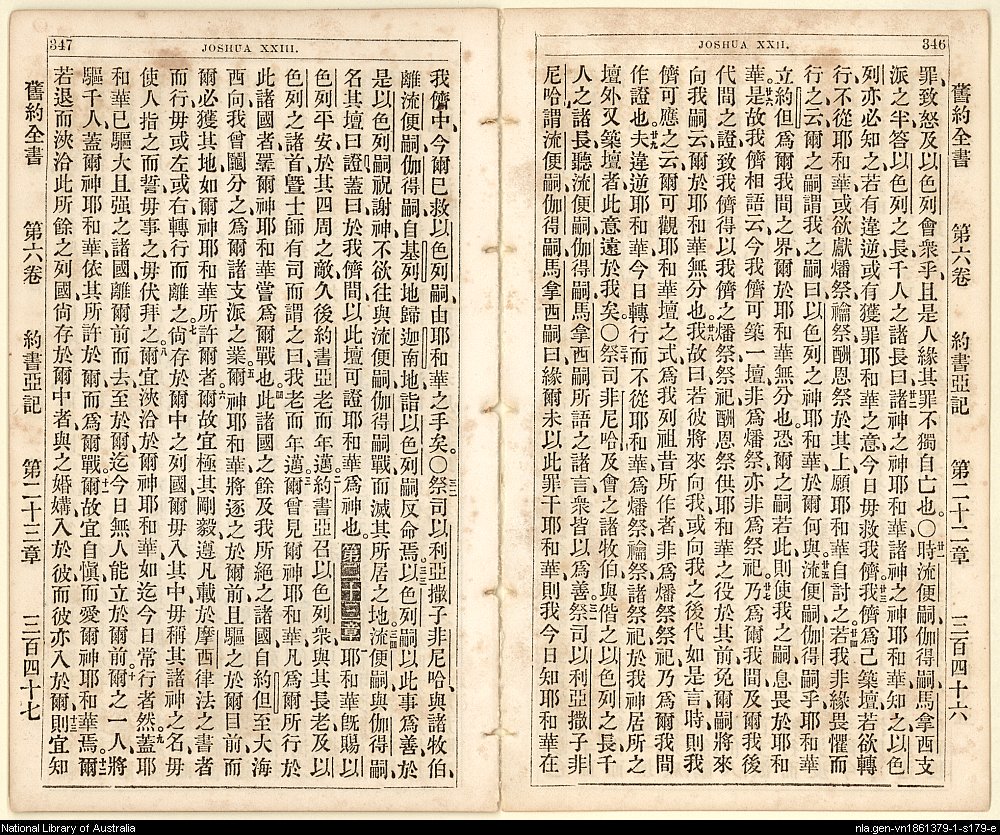 346
JOSHUA XXII.
舊約全書 第六卷 約書亞記 第二十二章 三百四十六
罪、致怒及以色列會衆乎、且是人緣其罪不獨自亡也。〇時流便嗣、伽得嗣、馬拿西支
派之半答以色列之長千人之諸長曰、諸神之神耶和華、諸神之神耶和華知之、以色
列亦必知之、若有違逆或有獲罪耶和華之意、今日毋救我儕、我儕爲己築壇若欲轉
行、不從耶和華、或欲獻燔祭、禴祭、酬恩祭於其上、願耶和華自討之、若我非緣畏懼而
行之、云爾之嗣謂我之嗣曰、以色列之神耶和華於爾何與、流便嗣、伽得嗣乎、耶和華
立約、但爲爾我間之界、爾於耶和華無分也、恐爾之嗣若此、則使我之嗣、息畏於耶和
華。是故我儕相語云、今我儕可築一壇、非爲燔祭、亦非爲祭祀、乃爲爾我間及爾我後
代間之證、致我儕得以我儕之燔祭、祭祀、酬恩祭供耶和華之役於其前、免爾嗣將來
向我嗣云、爾於耶和華無分也、我故曰、若彼將來向我、或向我之後代如是言時、則我
儕可應之云、爾可觀耶和華壇之式、爲我列祖昔所作者、非爲燔祭、祭祀、乃爲爾我間
作證也。夫違逆耶和華、今日轉行而不從耶和華、爲燔祭、禴祭、諸祭祀、於我神居所之
壇外、又築壇者、此意遠於我矣。〇祭司非尼哈、及會之諸牧伯與偕之以色列之長千
人之諸長、聽流便嗣、伽得嗣、馬拿西嗣所語之諸言、衆皆以爲善、祭司以利亞撒子非
尼哈謂流便嗣、伽得嗣、馬拿西嗣曰、緣爾未以此罪干耶和華、則我今日知耶和華在
347
JOSHUA XXIII.
我儕中、今爾已救以色列嗣、由耶和華之手矣。〇祭司以利亞撒子非尼哈與諸牧伯、
離流便嗣、伽得嗣、自基列地歸迦南地、詣以色列嗣反命焉。以色列嗣以此事爲善、於
是以色列嗣祝謝神、不欲往與流便嗣、伽得嗣戰、而滅其所居之地。流便嗣與伽得嗣、
名其壇曰證、蓋曰於我儕間以此壇可證耶和華爲神也。第二十三章 耶和華旣賜以
色列平安於其四周之敵、久後約書亞老而年邁、約書亞召以色列衆與其長老、及以
色列之諸首、曁士師有司而謂之曰、我老而年邁、爾曾見爾神耶和華凡爲爾所行於
此諸國者、畢爾神耶和華嘗爲爾戰也。此諸國之餘、及我所絶之諸國、自約但至大海
西向、我曾鬮分之爲爾諸支派之業。爾神耶和華將逐之於爾前、且驅之於爾目前、而
爾必獲其地、如爾神耶和華所許爾者。爾故宜極其剛毅、遵凡載於摩西律法之書者
而行、毋或左或右轉行而離之、尙存於爾中之列國、爾毋入其中、毋稱其諸神之名、毋
使人指之而誓、毋事之、毋伏拜之、爾宜浹洽於爾神耶和華、如迄今日常行者然。蓋耶
和華已驅大且强之諸國離爾前而去、至於爾、迄今日無人能立於爾前、爾之一人、將
驅千人、蓋爾神耶和華、依其所許於爾、而爲爾戰。爾故宜自愼而愛爾神耶和華焉。爾
若退而浹洽此所餘之列國、尙存於爾中者、與之婚媾、入於彼而彼亦入於爾、則宜知
舊約全書 第六卷 約書亞記 第二十三章 三百四十七
National Library of Australia
nla.gen-vn1861379-1-s179-e